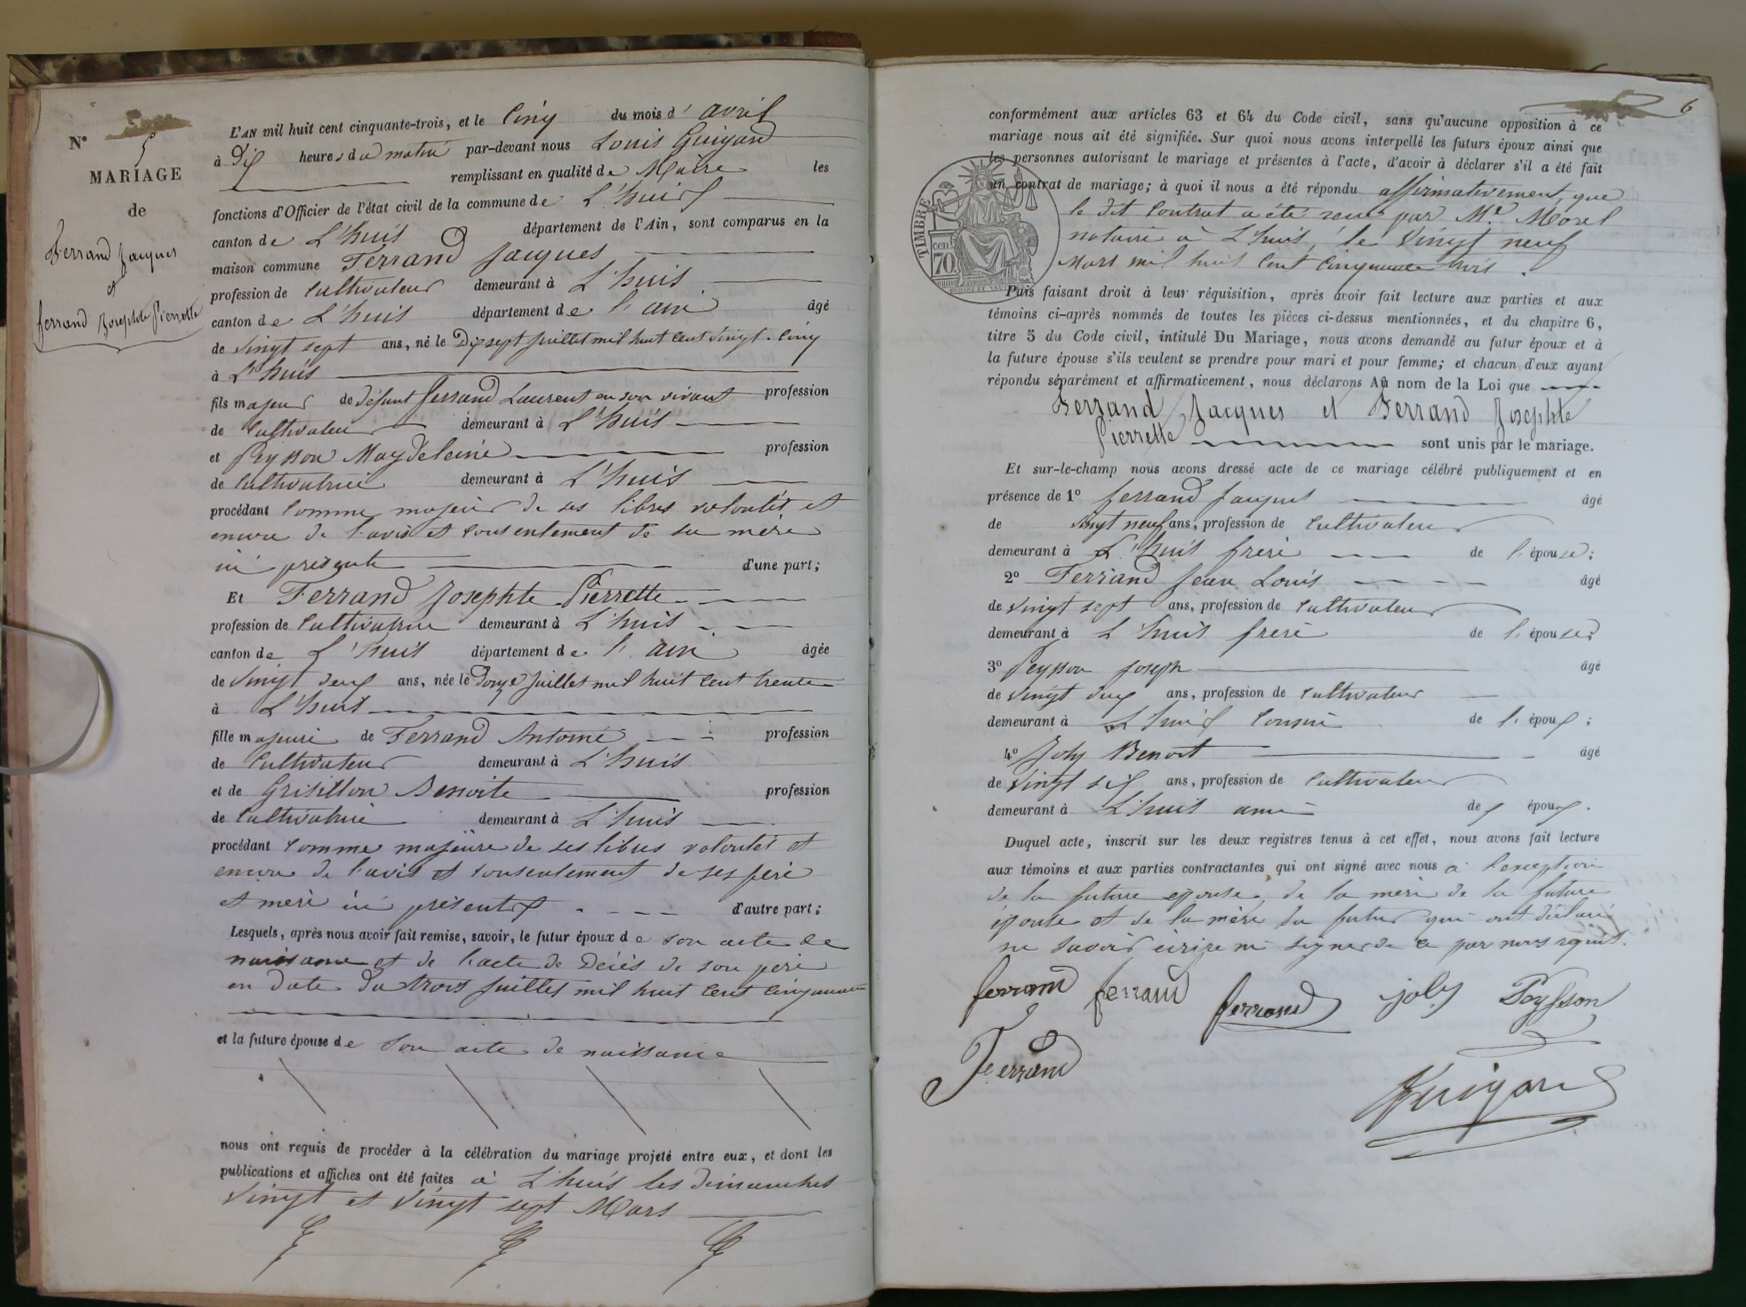 N° 5
MARIAGE
de
Ferrand Jacques
et
ferrand Josephte Pierrette
L'AN mil huit cent cinquante-trois, et le Cinq du mois d'avril
à Dix heures du matin par-devant nous Louis Guigard
remplissant en qualité de Maire les
fonctions d'Officier de l'état civil de la commune de L'huis
canton de L'huis département de l'Ain, sont comparus en la
maison commune Ferrand Jacques
profession de Cultivateur demeurant à L'huis
canton de L'huis département de l'ain âgé
de Vingt sept ans, né le Dix sept juillet mil huit cent vingt-cinq
à L'huis
fils majeur de défunt ferrand Laurent en son vivant profession
de Cultivateur demeurant à L'huis
et Peysson Magdeleine profession
de Cultivatrice demeurant à L'huis
procédant Comme majeur de ses libres volontés et
encore de l'avis et consentement de sa mère
ici présente d'une part;
Et Ferrand Josephte Pierrette
profession de Cultivatrice demeurant à L'huis
canton de L'huis département de l'ain âgée
de Vingt deux ans, née le Douze juillet mil huit cent trente
à L'huis
fille majeure de Ferrand Antoine profession
de Cultivateur demeurant à L'huis
et de Grisillon Benoite profession
de Cultivatrice demeurant à L'huis
procédant Comme majeure de ses libres volontés et
encore de l'avis et consentement de ses père
et mère ici présents d'autre part;
Lesquels, après nous avoir fait remise, savoir, le futur époux de son acte de
naissance et de l'acte de Décès de son père
en date du trois juillet mil huit cent cinquante
et la future épouse de son acte de naissance
nous ont requis de procéder à la célébration du mariage projeté entre eux, et dont les
publications et affiches ont été faites à L'huis les dimanches
Vingt et Vingt sept Mars
6
conformément aux articles 63 et 64 du Code civil, sans qu'aucune opposition à ce
mariage nous ait été signifiée. Sur quoi nous avons interpellé les futurs époux ainsi que
les personnes autorisant le mariage et présentes à l'acte, d'avoir à déclarer s'il a été fait
un contrat de mariage; à quoi il nous a été répondu affirmativement, que
le dit Contrat a été reçu par Me Morel
notaire à L'huis, le Vingt neuf
Mars mil huit cent cinquante trois.
TIMBRE
70 cent
Puis faisant droit à leur réquisition, après avoir fait lecture aux parties et aux
témoins ci-après nommés de toutes les pièces ci-dessus mentionnées, et du chapitre 6,
titre 5 du Code civil, intitulé Du Mariage, nous avons demandé au futur époux et à
la future épouse s'ils veulent se prendre pour mari et pour femme; et chacun d'eux ayant
répondu séparément et affirmativement, nous déclarons Au nom de la Loi que
Ferrand Jacques et Ferrand Josephte
Pierrette sont unis par le mariage.
Et sur-le-champ nous avons dressé acte de ce mariage célébré publiquement et en
présence de 1° ferrand Jacques âgé
de Vingt neuf ans, profession de Cultivateur
demeurant à L'huis frère de l'épouse;
2° Ferrand Jean Louis âgé
de Vingt sept ans, profession de Cultivateur
demeurant à L'huis frère de l'épouse;
3° Peysson Joseph âgé
de Vingt deux ans, profession de Cultivateur
demeurant à L'huis Cousin de l'époux;
4° Joly Benoit âgé
de Vingt six ans, profession de Cultivateur
demeurant à L'huis ami des époux.
Duquel acte, inscrit sur les deux registres tenus à cet effet, nous avons fait lecture
aux témoins et aux parties contractantes qui ont signé avec nous à l'exception
de la future épouse, de la mère de la future
épouse et de la mère du futur qui ont déclaré
ne savoir écrire ni signer de ce par nous requis.
ferrand ferrand ferrand joly Peysson
Ferrand
Guigard